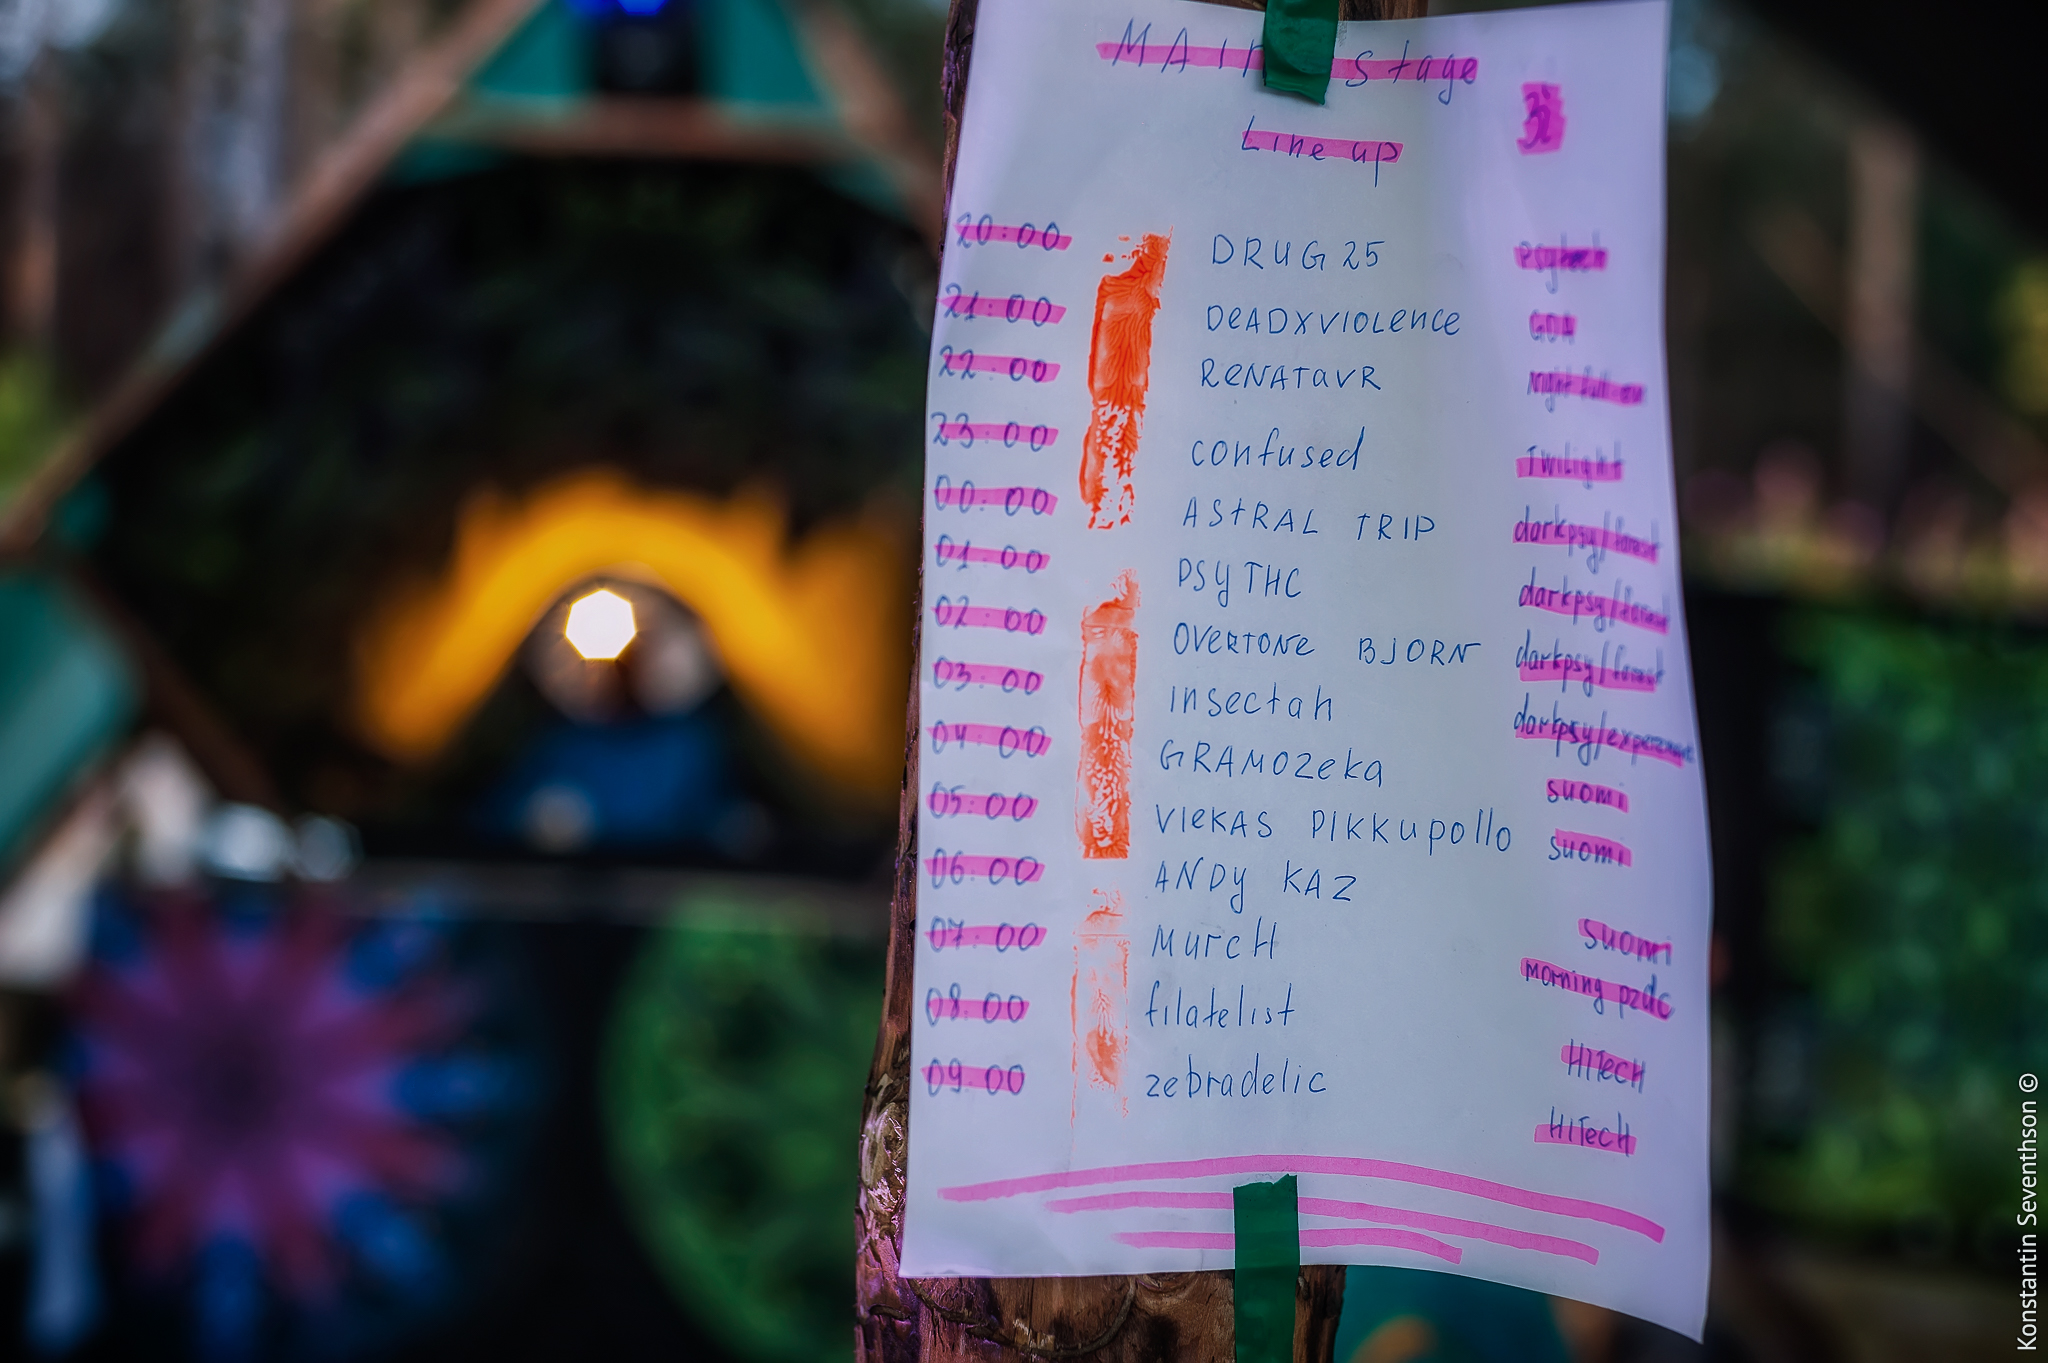 MAIN stage
Line up
20:00 DRUG 25 psytech
21:00 DeADXVIOLence GOA
22:00 RENATAVR Night full-on
23:00 confused Twilight
00:00 ASTRAL TRIP darkpsy/forest
01:00 PSYTHC darkpsy/forest
02:00 OVERTONe BJORN darkpsy/forest
03:00 insectah darkpsy/
04:00 GRAMOZeka suomi
05:00 VIEKAS PIKKUpollo suomi
06:00 ANDy KAZ suomi
07:00 MurcH morning
08:00 filatelist HiTecH
09:00 zebradelic HiTecH
Konstantin Seventhson ©